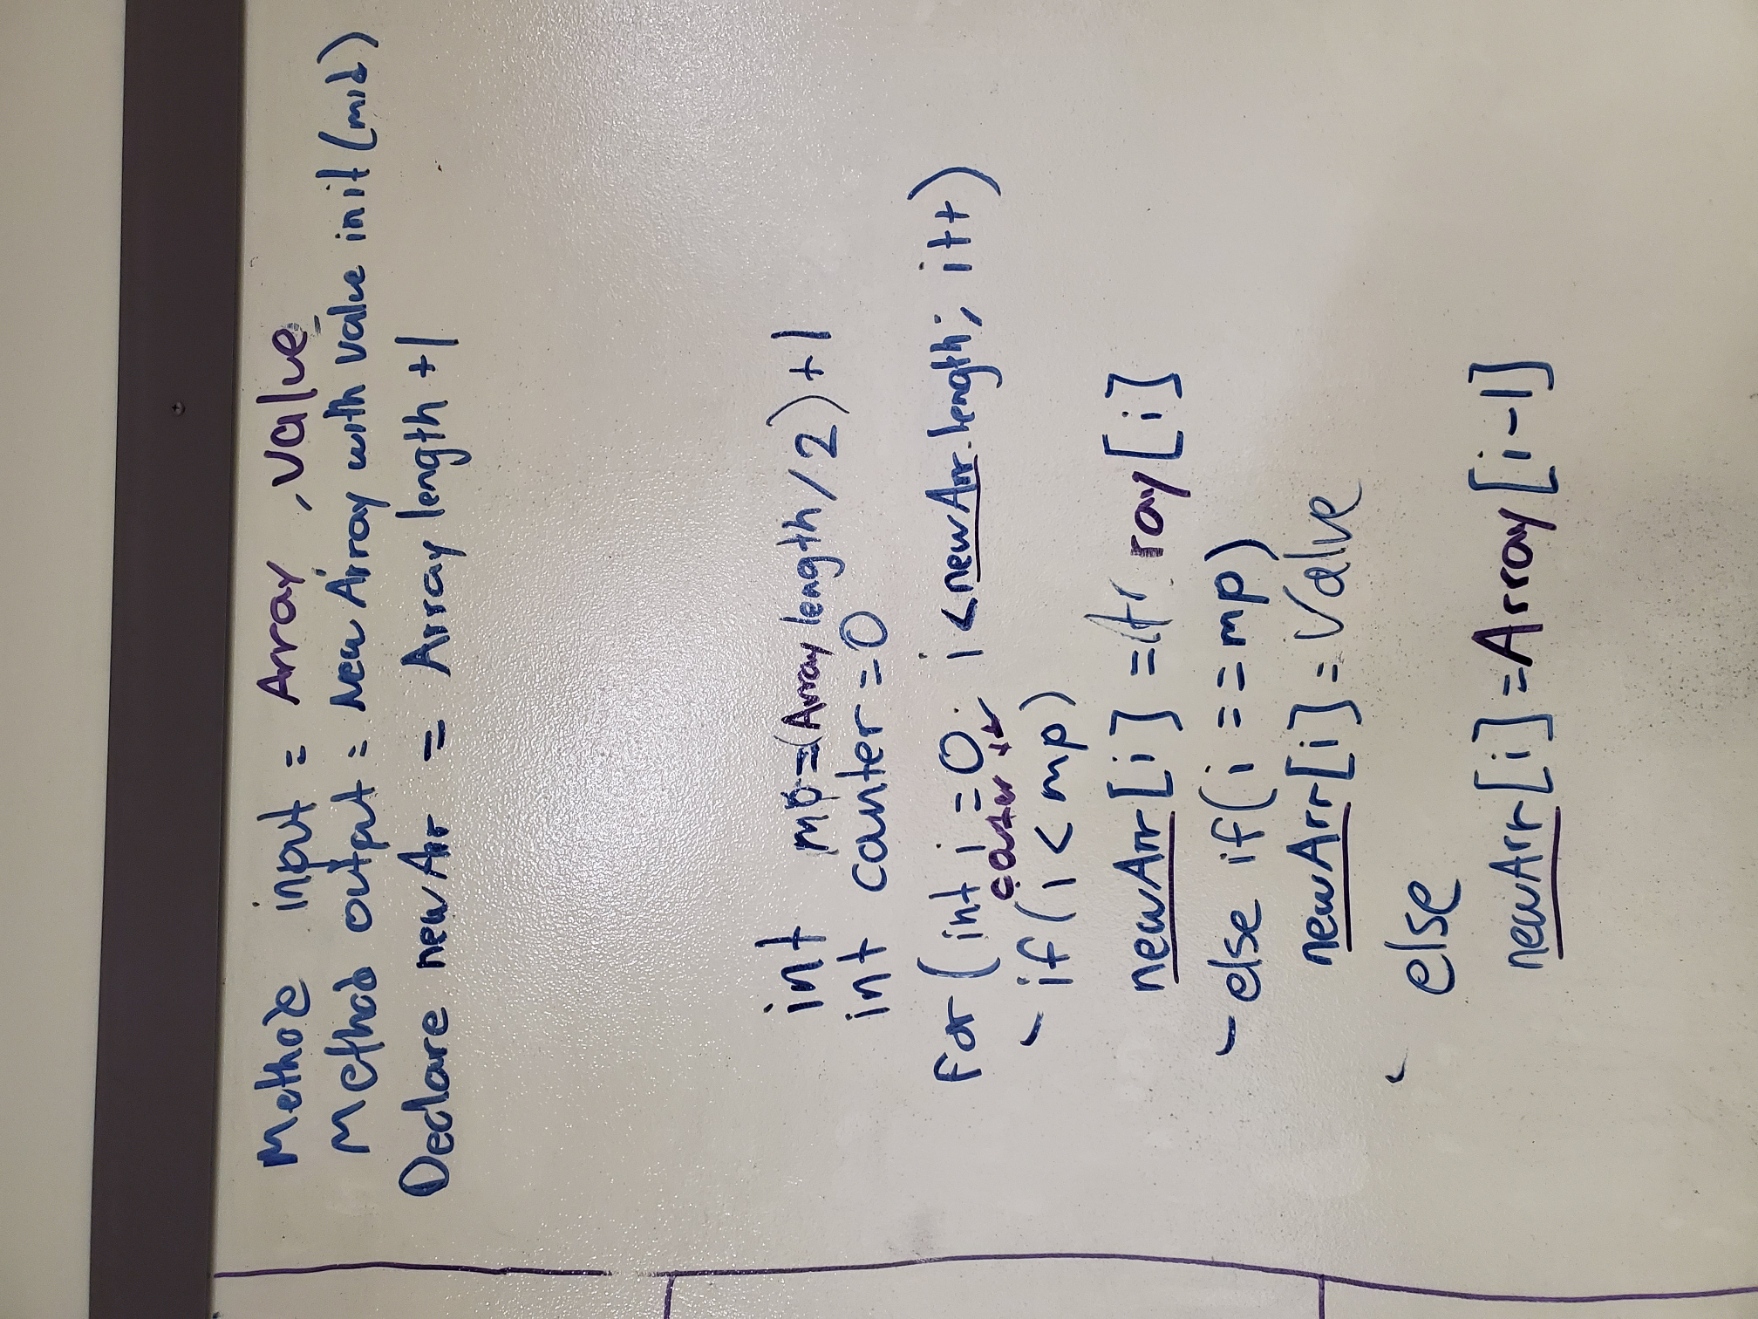 Method input = Array, value
Method output = New Array with value in it (mid)
Declare newArr = Array length +1
int mp=(Array length/2)+1
int counter=0
for (int i=0; i<newArr.length; i++)
counter ++
if(i<mp)
newArr[i] =Ar ray[i]
else if(i==mp)
newArr[i]=Value
else
newArr[i]=Array[i-1]